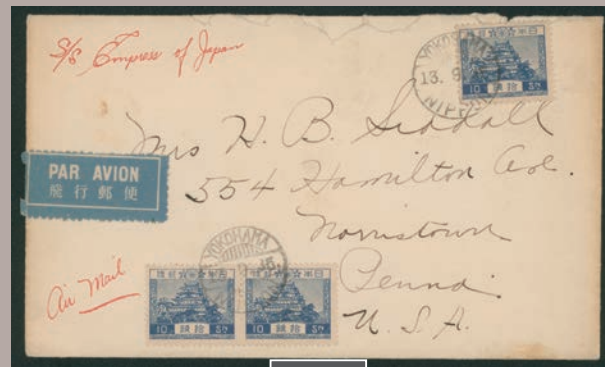 S/S Empress of Japan
YOKOHAMA
13. 9.
NIPPON
日本郵便
10 拾銭 Sn
Mrs H. B. Siddall
554 Hamilton Ave.
Norristown
Penna.
U. S. A.
PAR AVION
飛行郵便
Air Mail
YOKOHAMA
10 拾銭 Sn
10 拾銭 Sn